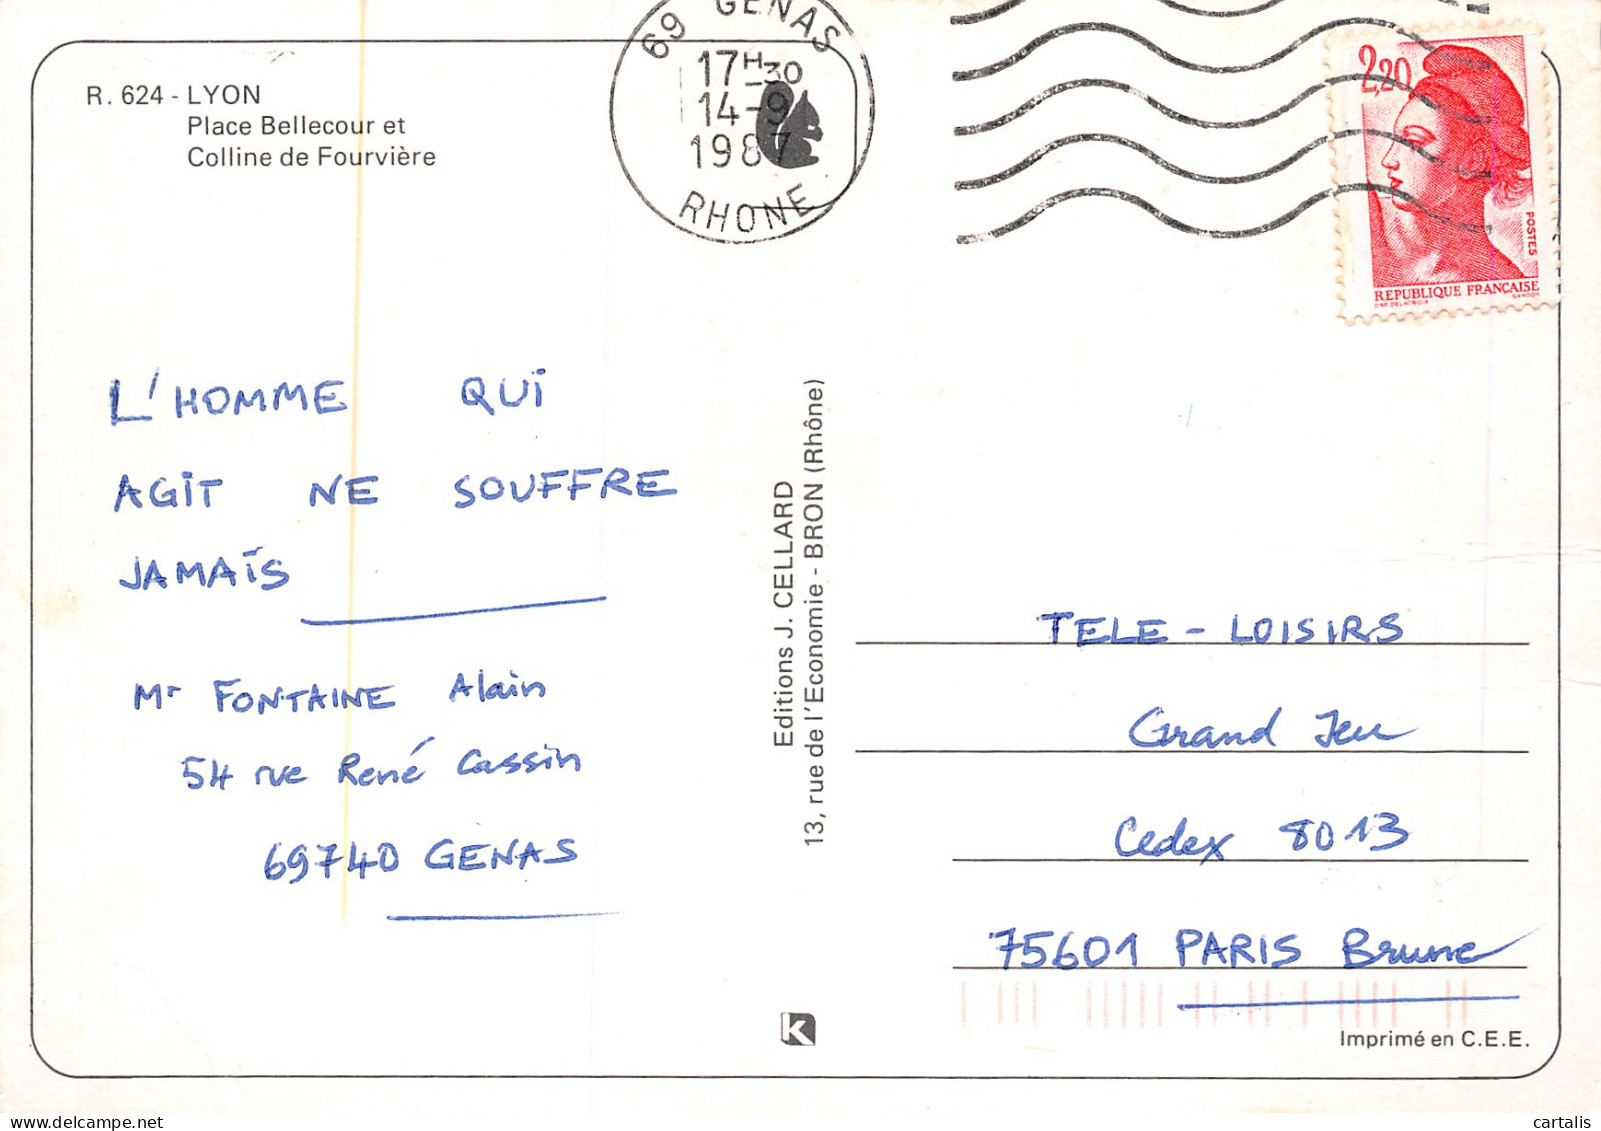 R. 624 - LYON
Place Bellecour et
Colline de Fourvière
69 GENAS
17H30
14-9
1987
RHONE
2,20
POSTES
REPUBLIQUE FRANÇAISE
D'AP. DELACROIX GANDON
L'HOMME QUI
AGIT NE SOUFFRE
JAMAÏS
Mr FONTAINE Alain
54 rue René Cassin
69740 GENAS
Editions J. CELLARD
13, rue de l'Economie - BRON (Rhône)
TELE - LOISIRS
Grand Jeu
Cedex 8013
75601 PARIS Brune
K
Imprimé en C.E.E.
cartalis